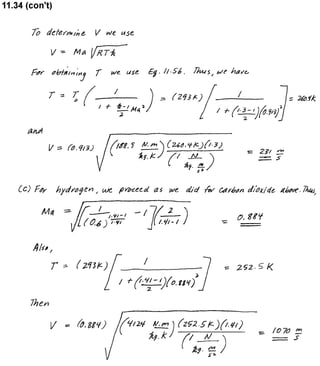 11.34 (con't)
To determine V we use
V = Ma √RTk
For obtaining T we use Eq. 11.56. Thus, we have
T = T₀ ( 1 / (1 + (k-1)/2 Ma²) ) = (293K) [ 1 / (1 + ((1.3-1)/2)(0.913)²) ] = 260.4K
and
V = (0.913) √( (188.9 N.m/kg.K)(260.4K)(1.3) / (1 N/(kg. m/s²)) ) = 231 m/s
(c) For hydrogen, we proceed as we did for carbon dioxide above. Thus,
Ma = √( [ 1/(0.6)^((1.41-1)/1.41) - 1 ] ( 2/(1.41-1) ) ) = 0.884
Also,
T = (293K) [ 1 / (1 + ((1.41-1)/2)(0.884)²) ] = 252.5 K
Then
V = (0.884) √( (4124 N.m/kg.K)(252.5K)(1.41) / (1 N/(kg. m/s²)) ) = 1070 m/s